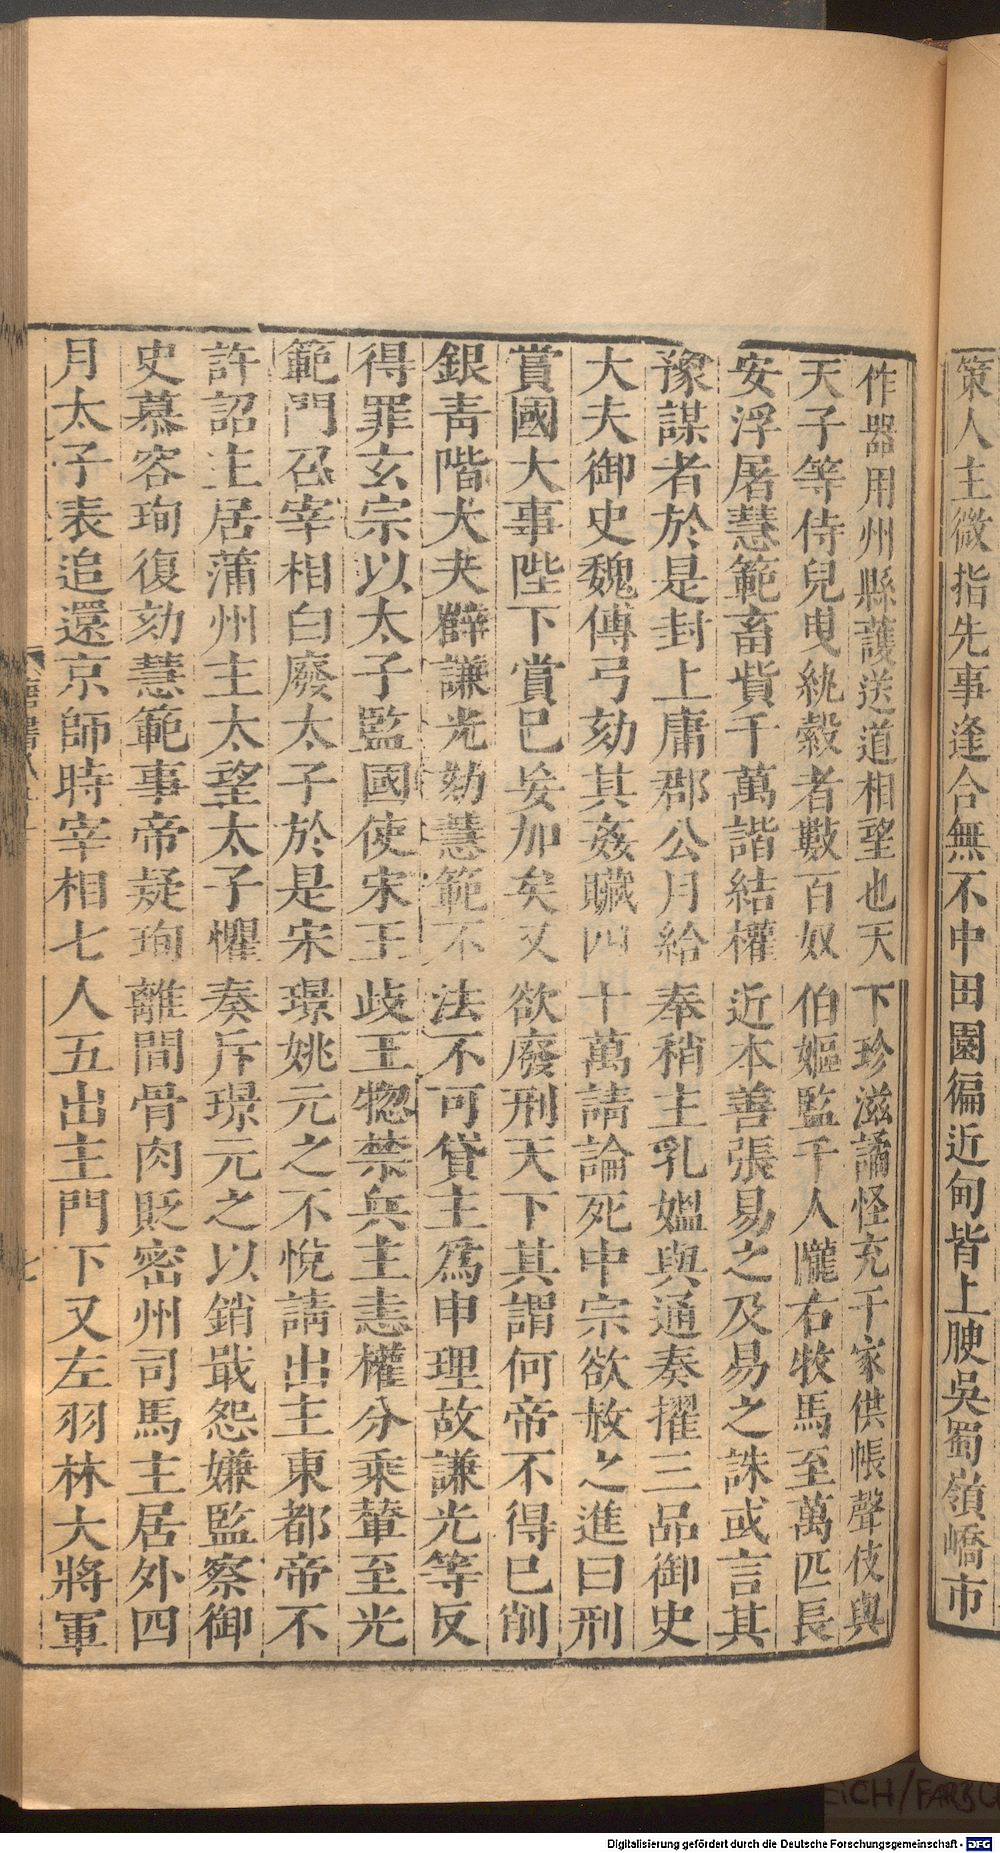 策人主微指先事逢合無不中田園徧近甸皆上腴吳蜀嶺嶠市
作器用州縣護送道相望也天下珍滋譎怪充于家供帳聲伎與
天子等侍兒曳紈縠者數百奴伯嫗監千人隴右牧馬至萬匹長
安浮屠慧範畜貲千萬諧結權近本善張易之及易之誅或言其
豫謀者於是封上庸郡公月給奉稍主乳媼與通奏擢三品御史
大夫御史魏傳弓劾其姦贓四十萬請論死中宗欲赦之進曰刑
賞國大事陛下賞已妄加矣又欲廢刑天下其謂何帝不得已削
銀青階大夫薛謙光劾慧範不法不可貸主爲申理故謙光等反
得罪玄宗以太子監國使宋王歧王惣禁兵主恚權分乘輦至光
範門召宰相白廢太子於是宋璟姚元之不悅請出主東都帝不
許詔主居蒲州主太望太子懼奏斥璟元之以銷戢怨嫌監察御
史慕容珣復劾慧範事帝疑珣離間骨肉貶密州司馬主居外四
月太子表追還京師時宰相七人五出主門下又左羽林大將軍
七
EICH/FARBC
Digitalisierung gefördert durch die Deutsche Forschungsgemeinschaft - DFG